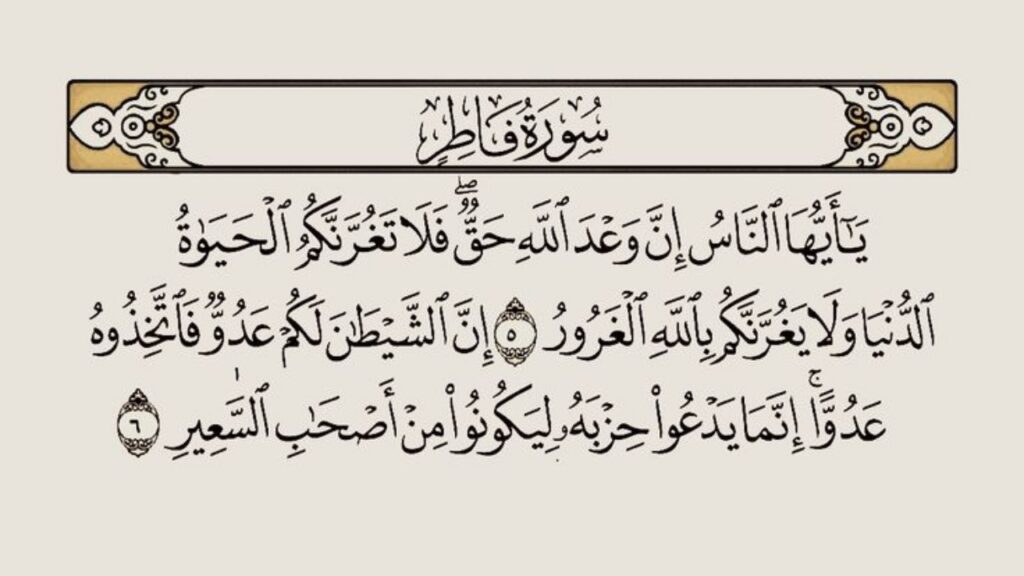 سُورَةُ فَاطِرٍ
يَٰٓأَيُّهَا ٱلنَّاسُ إِنَّ وَعْدَ ٱللَّهِ حَقٌّۖ فَلَا تَغُرَّنَّكُمُ ٱلْحَيَوٰةُ
ٱلدُّنْيَا وَلَا يَغُرَّنَّكُم بِٱللَّهِ ٱلْغَرُورُ ٥ إِنَّ ٱلشَّيْطَٰنَ لَكُمْ عَدُوٌّ فَٱتَّخِذُوهُ
عَدُوًّاۚ إِنَّمَا يَدْعُوا۟ حِزْبَهُۥ لِيَكُونُوا۟ مِنْ أَصْحَٰبِ ٱلسَّعِيرِ ٦